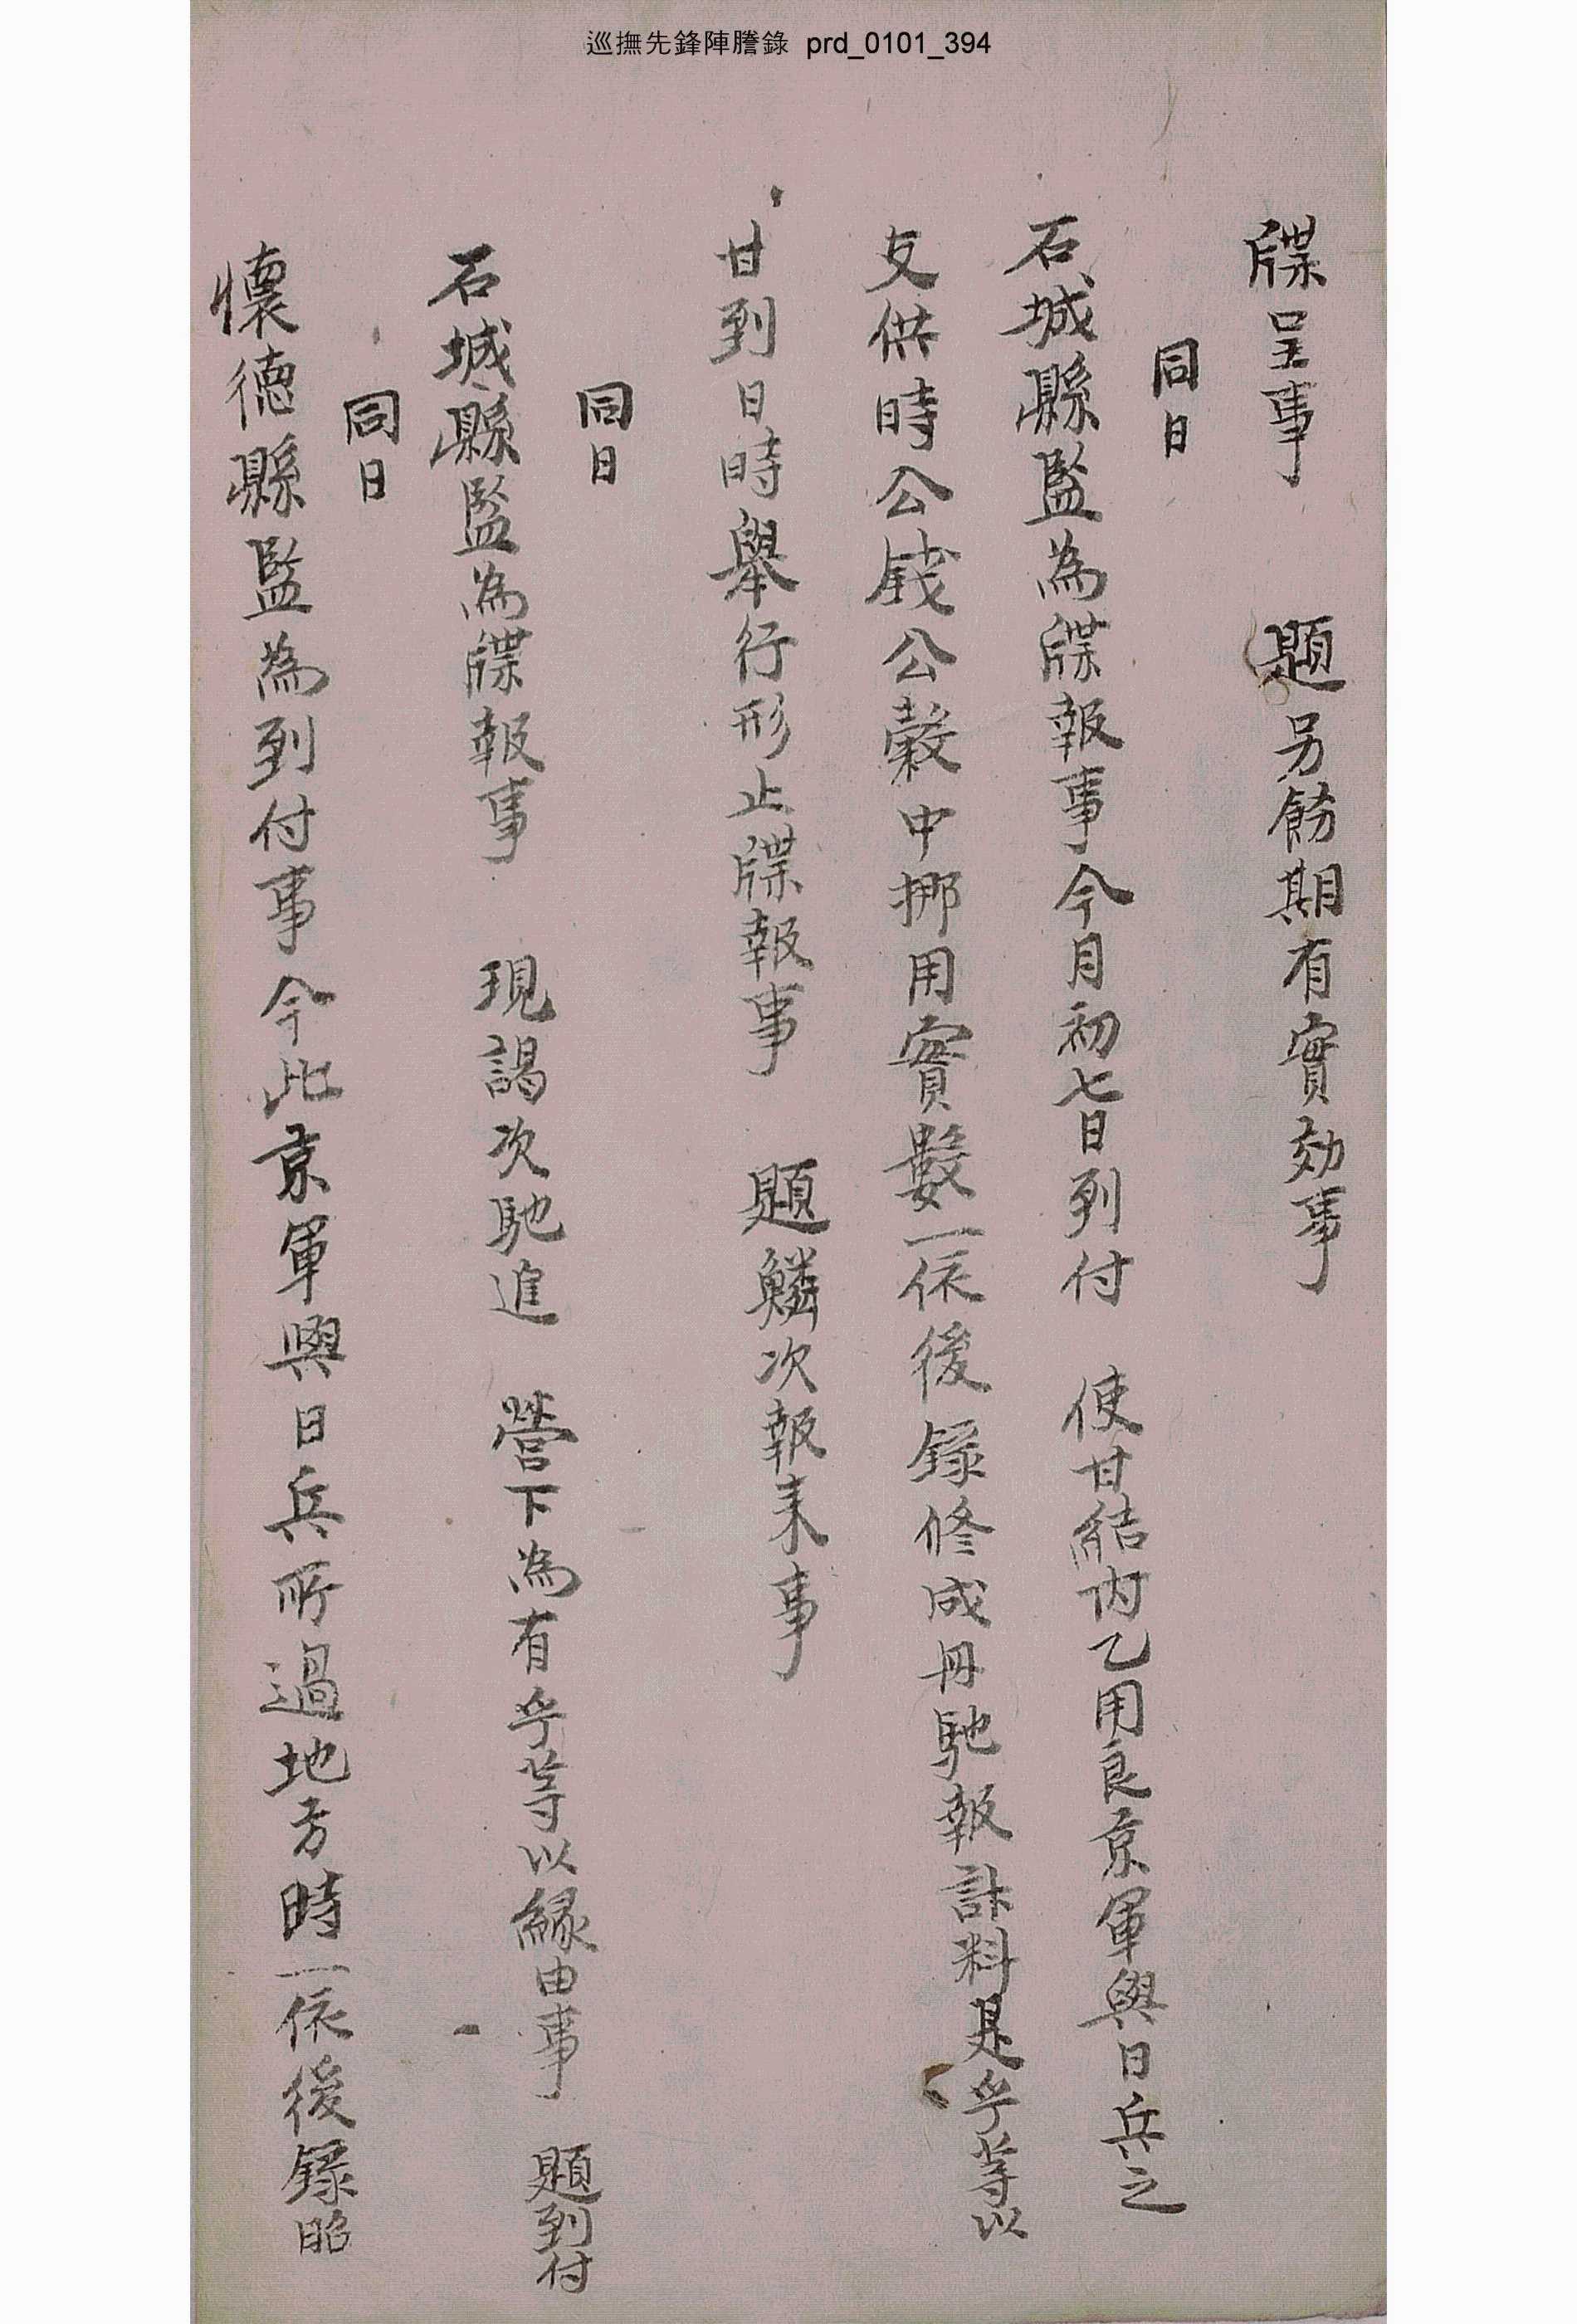 巡撫先鋒陣謄錄 prd_0101_394
牒呈事 題 另飭期有實効事
同日
石城縣監為牒報事今月初七日到付 使甘結內乙用良京軍與日兵之
支供時公錢公穀中挪用實數一依後錄修成冊馳報計料是乎等以
甘到日時舉行形止牒報事 題鱗次報來事
同日
石城縣監為牒報事 現謁次馳進 營下為有乎等以緣由事 題到付
同日
懷德縣監為到付事今此京軍與日兵所過地方時一依後錄昭